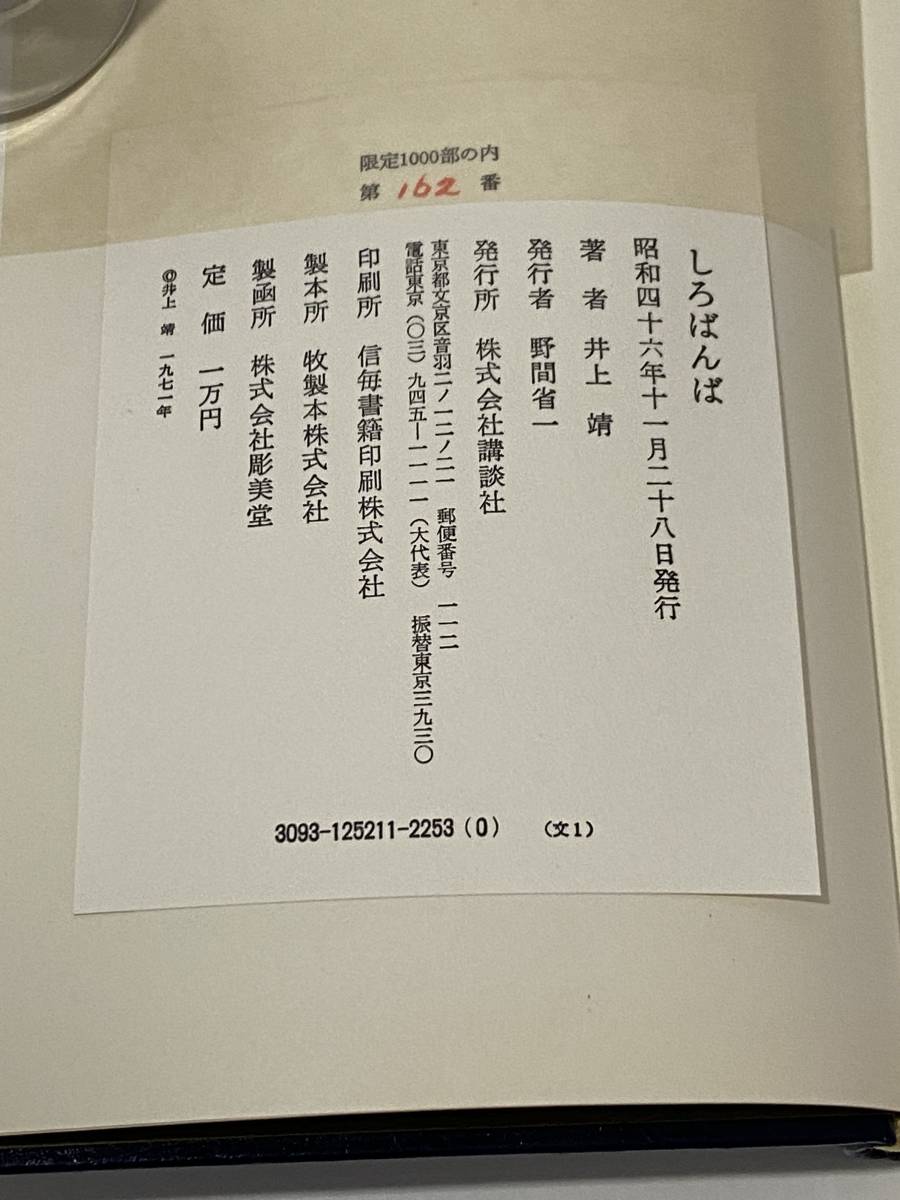 限定1000部の内
第 162 番
しろばんば
昭和四十六年十一月二十八日発行
著者 井上靖
発行者 野間省一
発行所 株式会社講談社
東京都文京区音羽二ノ一二ノ二一 郵便番号 一一二
電話東京(〇三)九四五―一一一一(大代表) 振替東京三九三〇
印刷所 信毎書籍印刷株式会社
製本所 牧製本株式会社
製函所 株式会社彫美堂
定価 一万円
©井上 靖 一九七一年
3093-125211-2253(0) (文1)